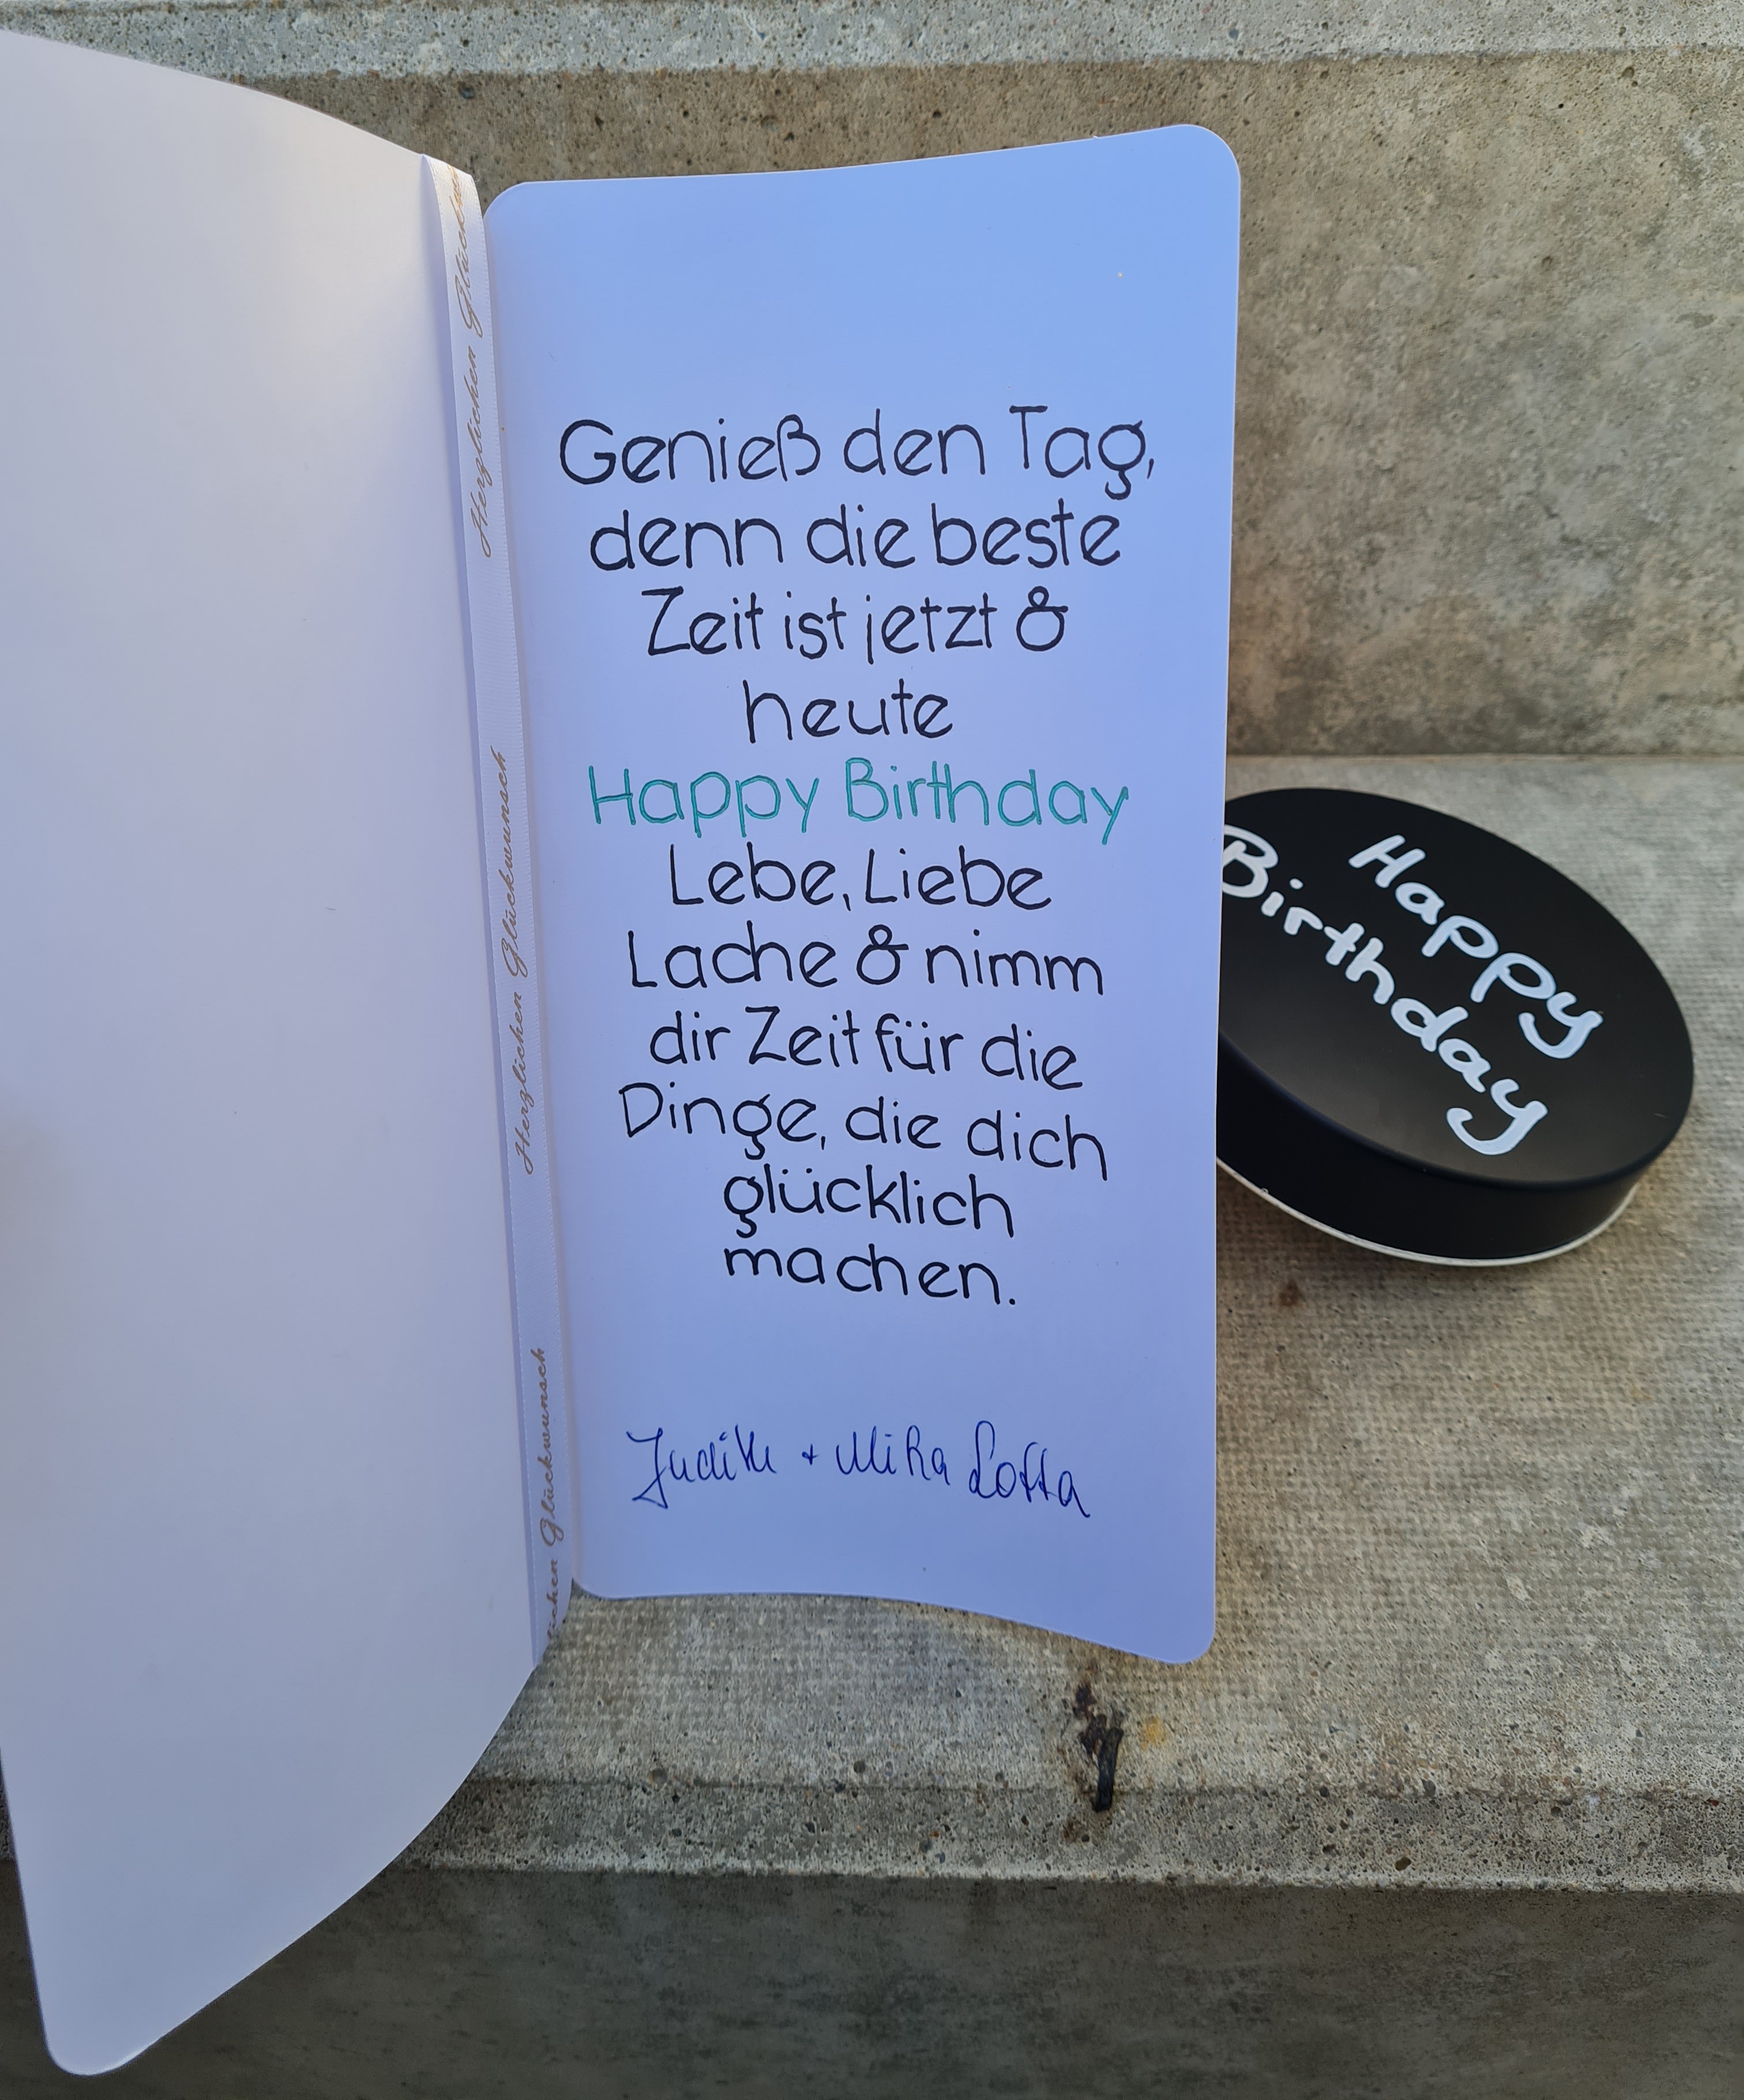 Herzlichen Glückwunsch
Herzlichen Glückwunsch
Glückwunsch
Genieß den Tag,
denn die beste
Zeit ist jetzt &
heute
Happy Birthday
Lebe, Liebe
Lache & nimm
dir Zeit für die
Dinge, die dich
glücklich
machen.
Judith + Mika Lotta
Happy
Birthday